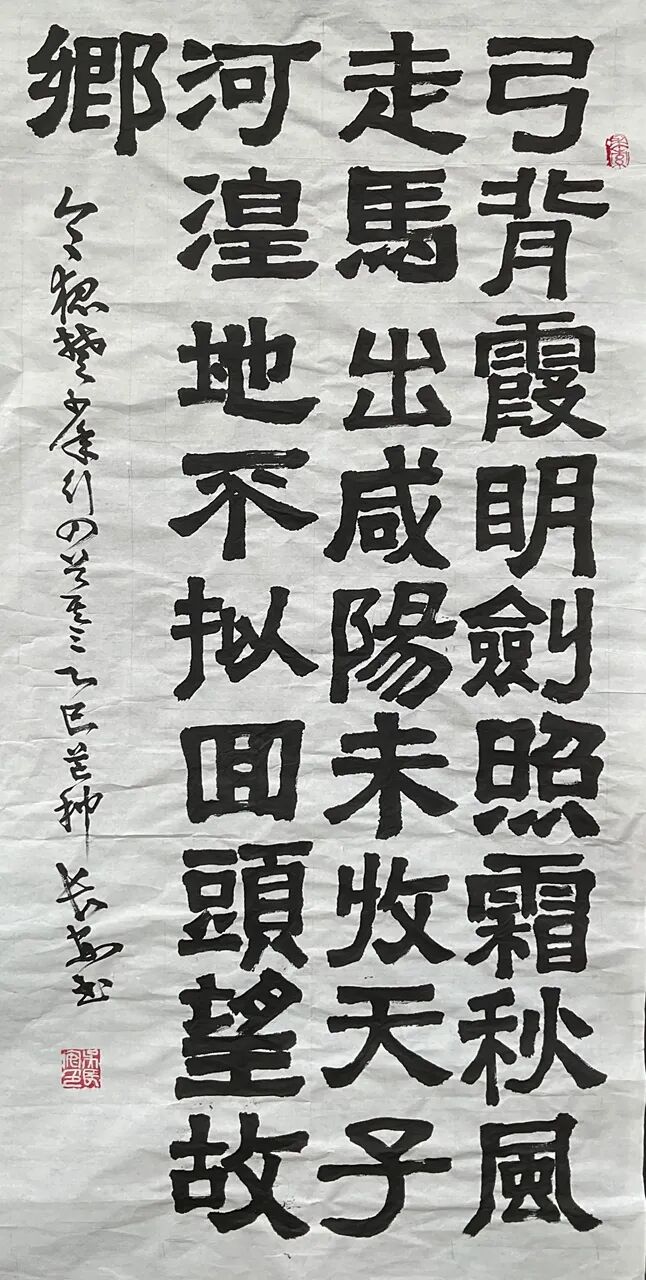 弓背霞明劍照霜秋風
走馬出咸陽未收天子
河湟地不拟回頭望故
鄉
令狐楚少年行四首其三乙巳芒种長安書